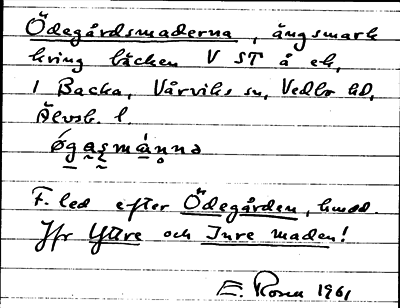 Ödegårdsmaderna, ängsmark
kring bäcken V ST å ek,
1 Backa, Vårviks sn, Vedbo hd,
Älvsb. l.
øgasmánna
F. led efter Ödegården, hmd.
Jfr Yttre och Inre maden!
E. Rosen 1961